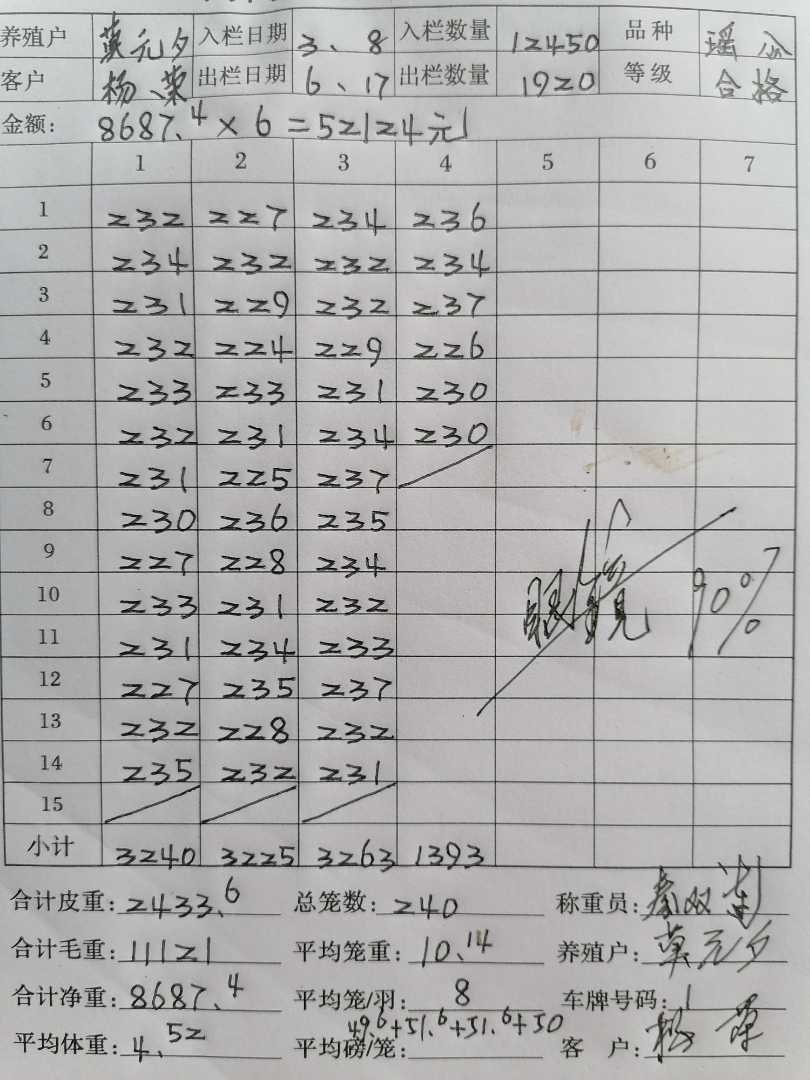 养殖户 莫元夕 入栏日期 3、8 入栏数量 12450 品种 瑶公
客户 杨、荣 出栏日期 6、17 出栏数量 1920 等级 合格
金额: 8687.4×6=52124元
1 2 3 4 5 6 7
1 232 227 234 236
2 234 232 232 234
3 231 229 232 237
4 232 224 229 226
5 233 233 231 230
6 232 231 234 230
7 231 225 237
8 230 236 235
9 227 228 234
10 233 231 232 90%
11 231 234 233
12 227 235 237
13 232 228 232
14 235 232 231
15
小计 3240 3225 3263 1393
合计皮重: 2433.6 总笼数: 240 称重员: 双
合计毛重: 11121 平均笼重: 10.14 养殖户: 莫元夕
合计净重: 8687.4 平均笼/羽: 8 车牌号码: 1
平均体重: 4.52 平均磅/笼: 49.6+51.6+51.6+50 客 户: 杨 荣